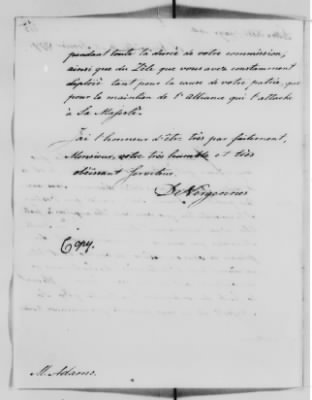 pendant toute la durée de votre commission,
ainsi que du Zèle que vous avez constamment
deploié tant pour la cause de votre patrie, que
pour le maintien de l'alliance qui l'attache
à Sa Majesté.
J'ai l'honneur d'être très parfaitement,
Monsieur, votre très humble et très
obéissant serviteur.
De Vergennes
Copy.
M. Adams.